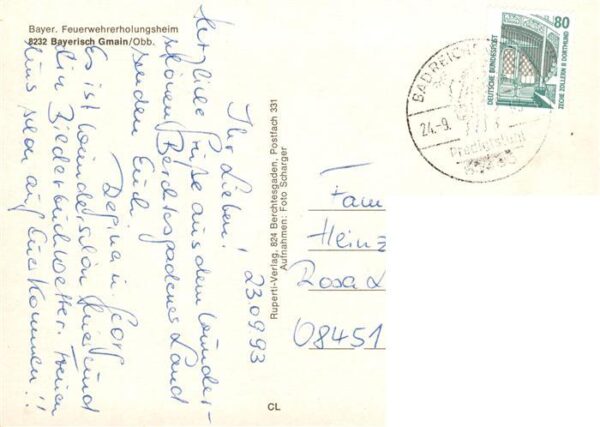 Bayer. Feuerwehrerholungsheim
8232 Bayerisch Gmain/Obb.
23.09.93
Ihr Lieben!
Herzliche Grüße aus dem wunder-
schönen Berchtesgadener Land
senden Euch
Regina u. Jörg
Es ist wunderschön hier und
ein Bilderbuchwetter. Freuen
uns sehr auf Euer Kommen!!
Ruperti-Verlag, 824 Berchtesgaden, Postfach 331
Aufnahmen: Foto Scharger
CL
DEUTSCHE BUNDESPOST
80
ZECHE ZOLLERN II DORTMUND
BAD REICH
24.-9.
Predigtstuhl
Fam
Heinz
Rosa L
08451